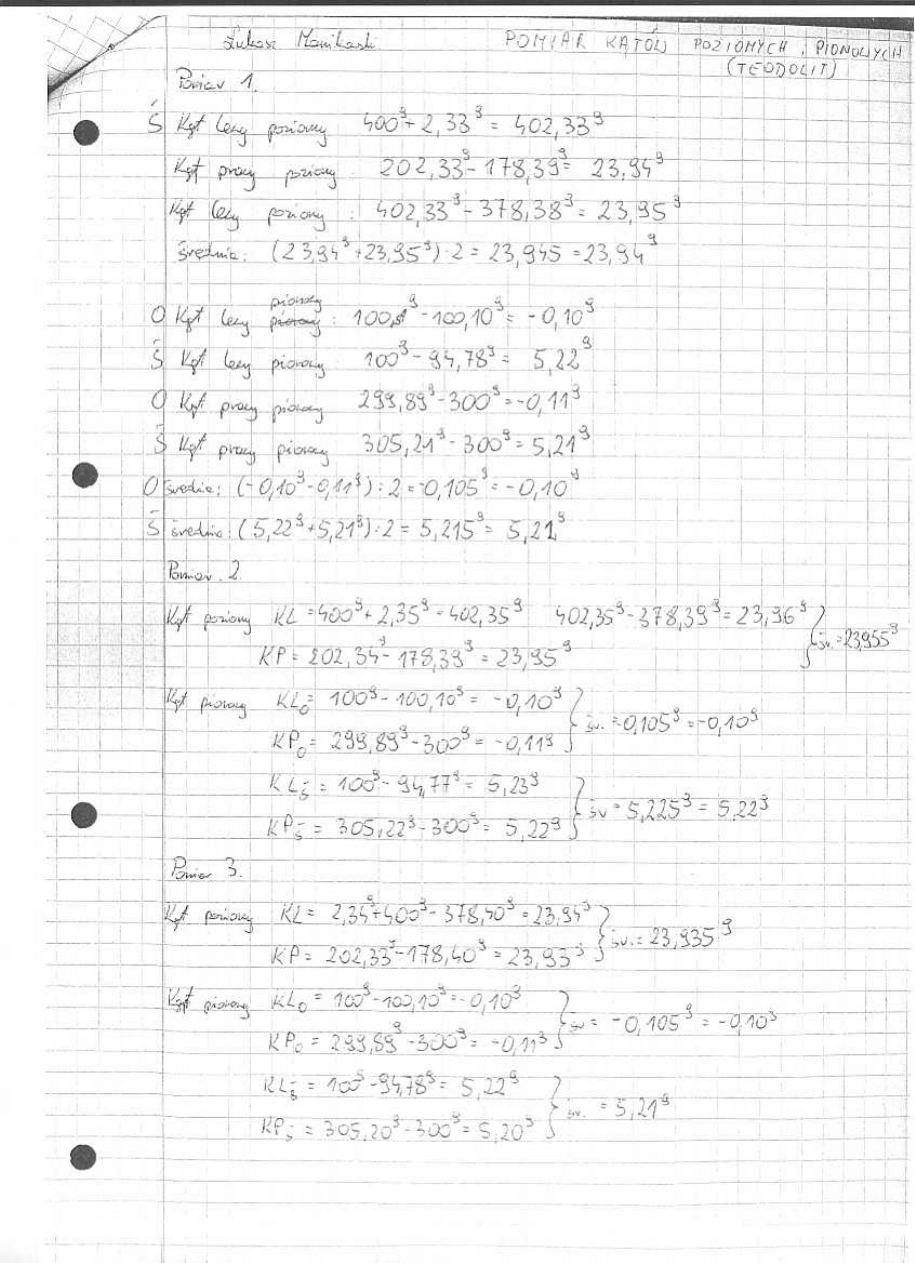 Łukasz Manikaski POMIAR KĄTÓW POZIOMYCH I PIONOWYCH
(TEODOLIT)
Pomiar 1.
Ś Kąt lewy poziomy 400ᵍ + 2,33ᵍ = 402,33ᵍ
Kąt prawy poziomy: 202,33ᵍ - 178,39ᵍ = 23,94ᵍ
Kąt lewy poziomy: 402,33ᵍ - 378,38ᵍ = 23,95ᵍ
średnia: (23,94ᵍ + 23,95ᵍ) : 2 = 23,945 = 23,94ᵍ
pionowy
O Kąt lewy : 100ᵍ - 100,10ᵍ = -0,10ᵍ
Ś Kąt lewy pionowy: 100ᵍ - 94,78ᵍ = 5,22ᵍ
O Kąt prawy pionowy 299,89ᵍ - 300ᵍ = -0,11ᵍ
Ś Kąt prawy pionowy 305,21ᵍ - 300ᵍ = 5,21ᵍ
O średnia: (-0,10ᵍ - 0,11ᵍ) : 2 = -0,105ᵍ = -0,10ᵍ
Ś średnia: (5,22ᵍ + 5,21ᵍ) : 2 = 5,215ᵍ = 5,21ᵍ
Pomiar 2.
Kąt poziomy KL = 400ᵍ + 2,35ᵍ = 402,35ᵍ 402,35ᵍ - 378,39ᵍ = 23,96ᵍ
KP = 202,34ᵍ - 178,39ᵍ = 23,95ᵍ } śr. = 23,955ᵍ
Kąt pionowy KL₀ = 100ᵍ - 100,10ᵍ = -0,10ᵍ
KP₀ = 299,89ᵍ - 300ᵍ = -0,11ᵍ } śr. = -0,105ᵍ = -0,10ᵍ
KLś = 100ᵍ - 94,77ᵍ = 5,23ᵍ
KPś = 305,22ᵍ - 300ᵍ = 5,22ᵍ } śr = 5,225ᵍ = 5,22ᵍ
Pomiar 3.
Kąt poziomy KL = 2,34ᵍ + 400ᵍ - 378,40ᵍ = 23,94ᵍ
KP = 202,33ᵍ - 178,40ᵍ = 23,93ᵍ } śr. = 23,935ᵍ
Kąt pionowy KL₀ = 100ᵍ - 100,10ᵍ = -0,10ᵍ
KP₀ = 299,89ᵍ - 300ᵍ = -0,11ᵍ } śr = -0,105ᵍ = -0,10ᵍ
KLś = 100ᵍ - 94,78ᵍ = 5,22ᵍ
KPś = 305,20ᵍ - 300ᵍ = 5,20ᵍ } śr. = 5,21ᵍ